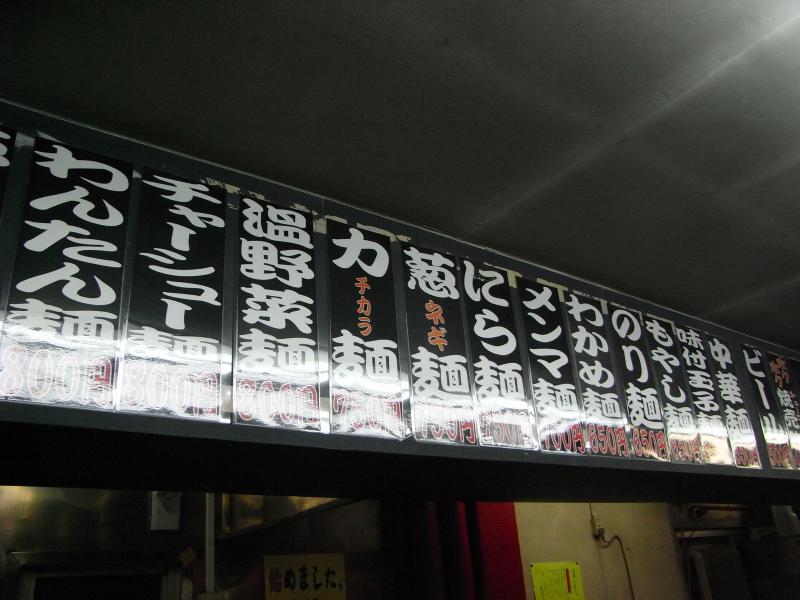 わんたん麺
800円
チャーシュー麺
800円
温野菜麺
800円
力
チカラ
麺
750円
葱
ネギ
麺
750円
にら麺
750円
メンマ麺
700円
わかめ麺
650円
のり麺
650円
もやし麺
味付玉子麺
中華麺
ビール
始めました。